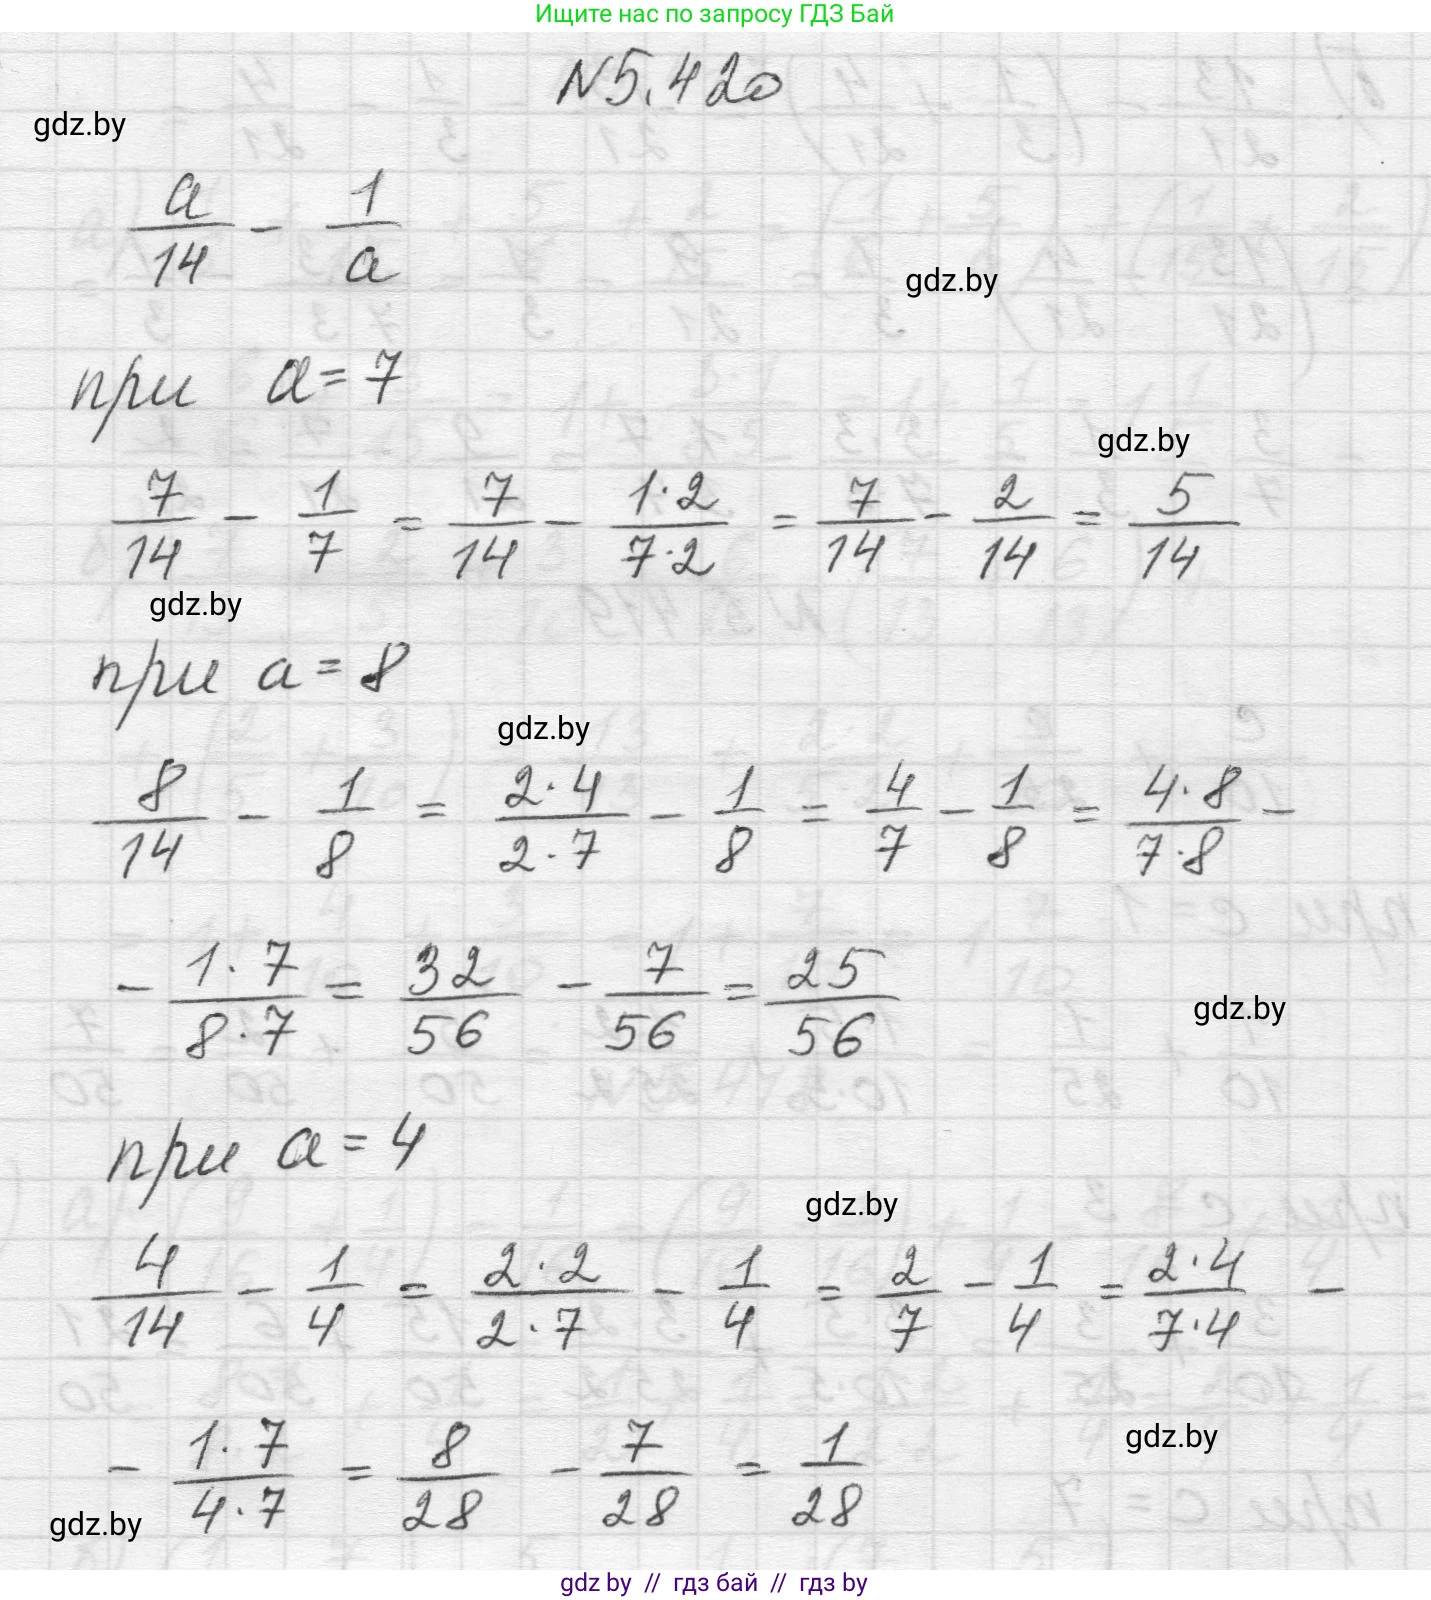 Ищите нас по запросу ГДЗ Бай
N5.420
gdz.by
a/14 - 1/a
gdz.by
при a=7
gdz.by
7/14 - 1/7 = 7/14 - 1·2/7·2 = 7/14 - 2/14 = 5/14
gdz.by
при a=8
gdz.by
8/14 - 1/8 = 2·4/2·7 - 1/8 = 4/7 - 1/8 = 4·8/7·8 -
- 1·7/8·7 = 32/56 - 7/56 = 25/56
gdz.by
при a=4
gdz.by
4/14 - 1/4 = 2·2/2·7 - 1/4 = 2/7 - 1/4 = 2·4/7·4 -
- 1·7/4·7 = 8/28 - 7/28 = 1/28
gdz.by
gdz.by
gdz by // гдз бай // гдз by